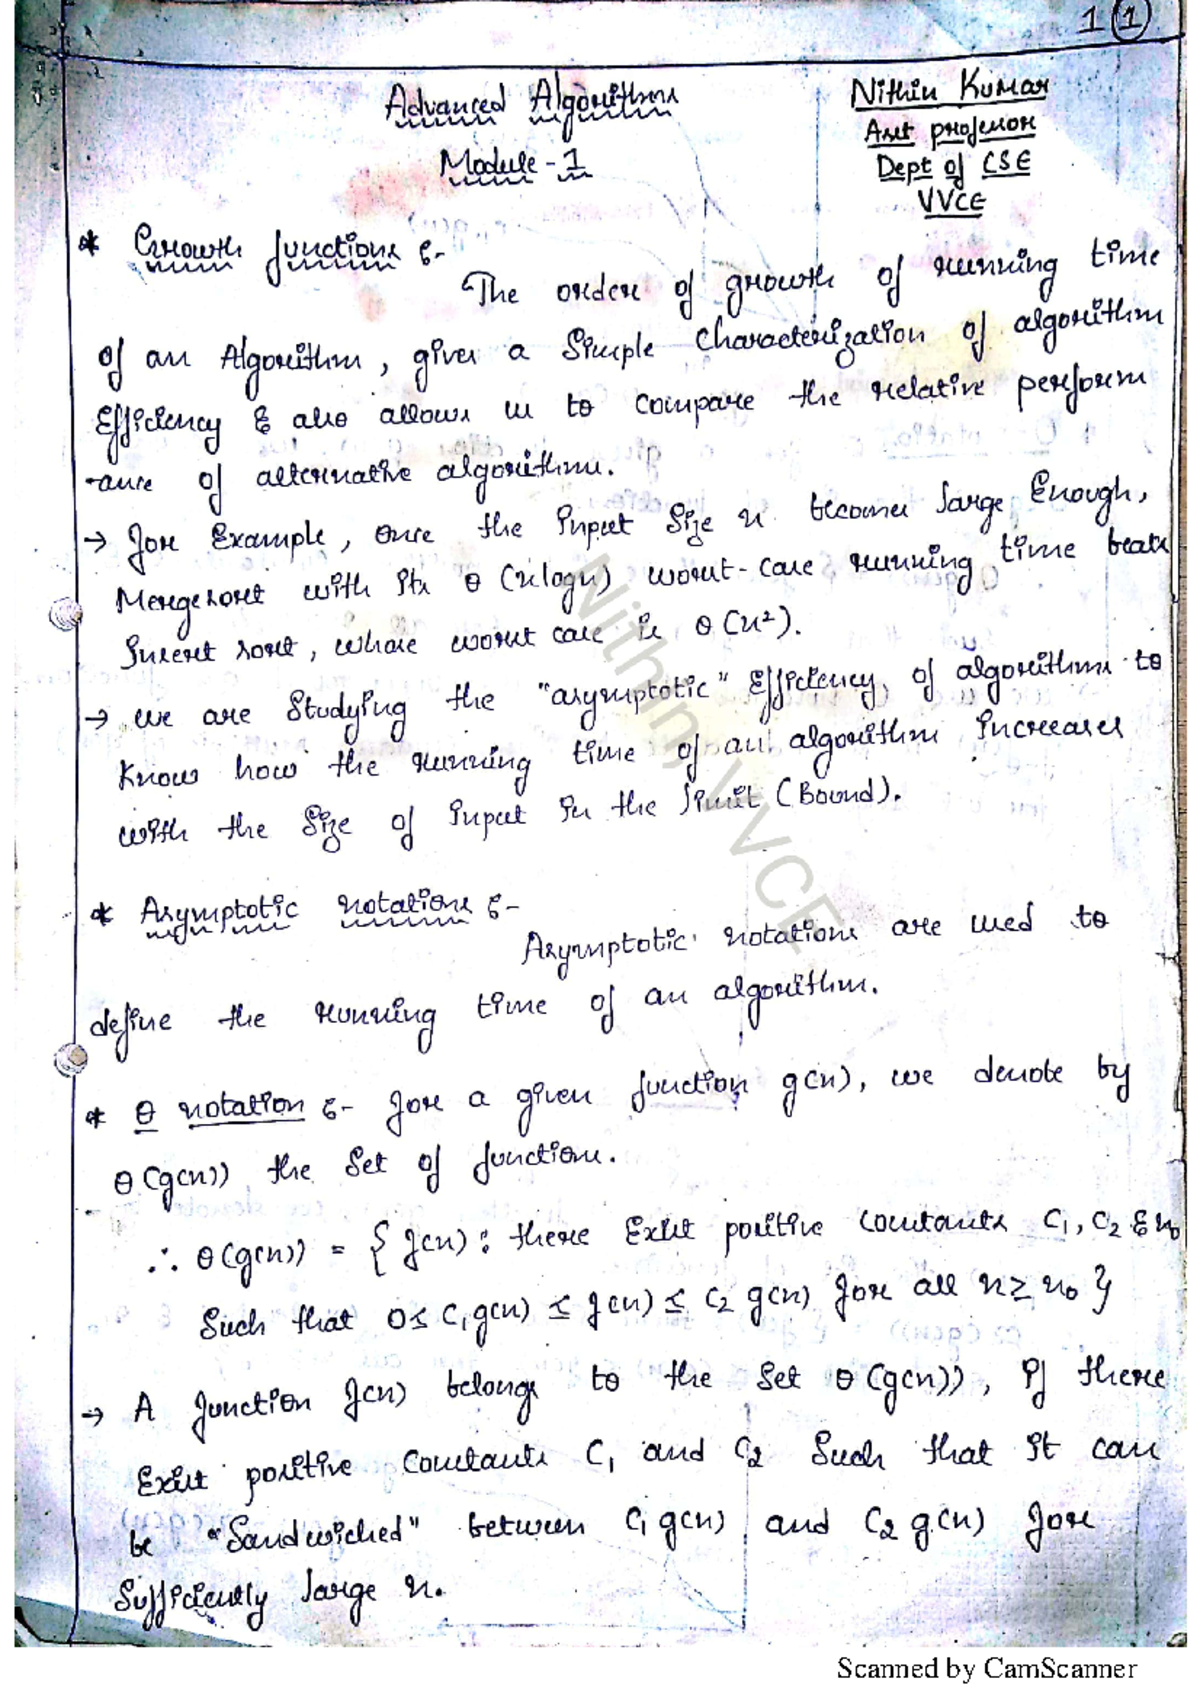 1 (1)
Advanced Algorithms
Nithin Kumar
Asst professor
Module - 1
Dept of CSE
VVCE
* Growth functions :-
The order of growth of running time
of an Algorithm, gives a Simple characterization of algorithm
Efficiency & also allows us to compare the relative perform
-ance of alternative algorithms.
→ for Example, once the input size n becomes large Enough,
Mergesort with its θ (nlogn) worst-case running time beats
Insert sort, whose worst case is θ (n²).
→ we are studying the "asymptotic" Efficiency of algorithms to
know how the running time of an algorithm increases
with the size of input in the limit (Bound).
* Asymptotic notations :-
Asymptotic notations are used to
define the running time of an algorithm.
* θ notation :- for a given function g(n), we denote by
θ(g(n)) the set of functions.
∴ θ(g(n)) = { f(n) : there Exist positive constants C₁, C₂ & n₀
Such that 0≤ C₁g(n) ≤ f(n) ≤ C₂ g(n) for all n≥ n₀ }
→ A function f(n) belongs to the set θ(g(n)), if there
Exist positive constants C₁ and C₂ such that it can
be "Sandwiched" between C₁ g(n) and C₂ g(n) for
sufficiently large n.
Nithin VVCE
Scanned by CamScanner